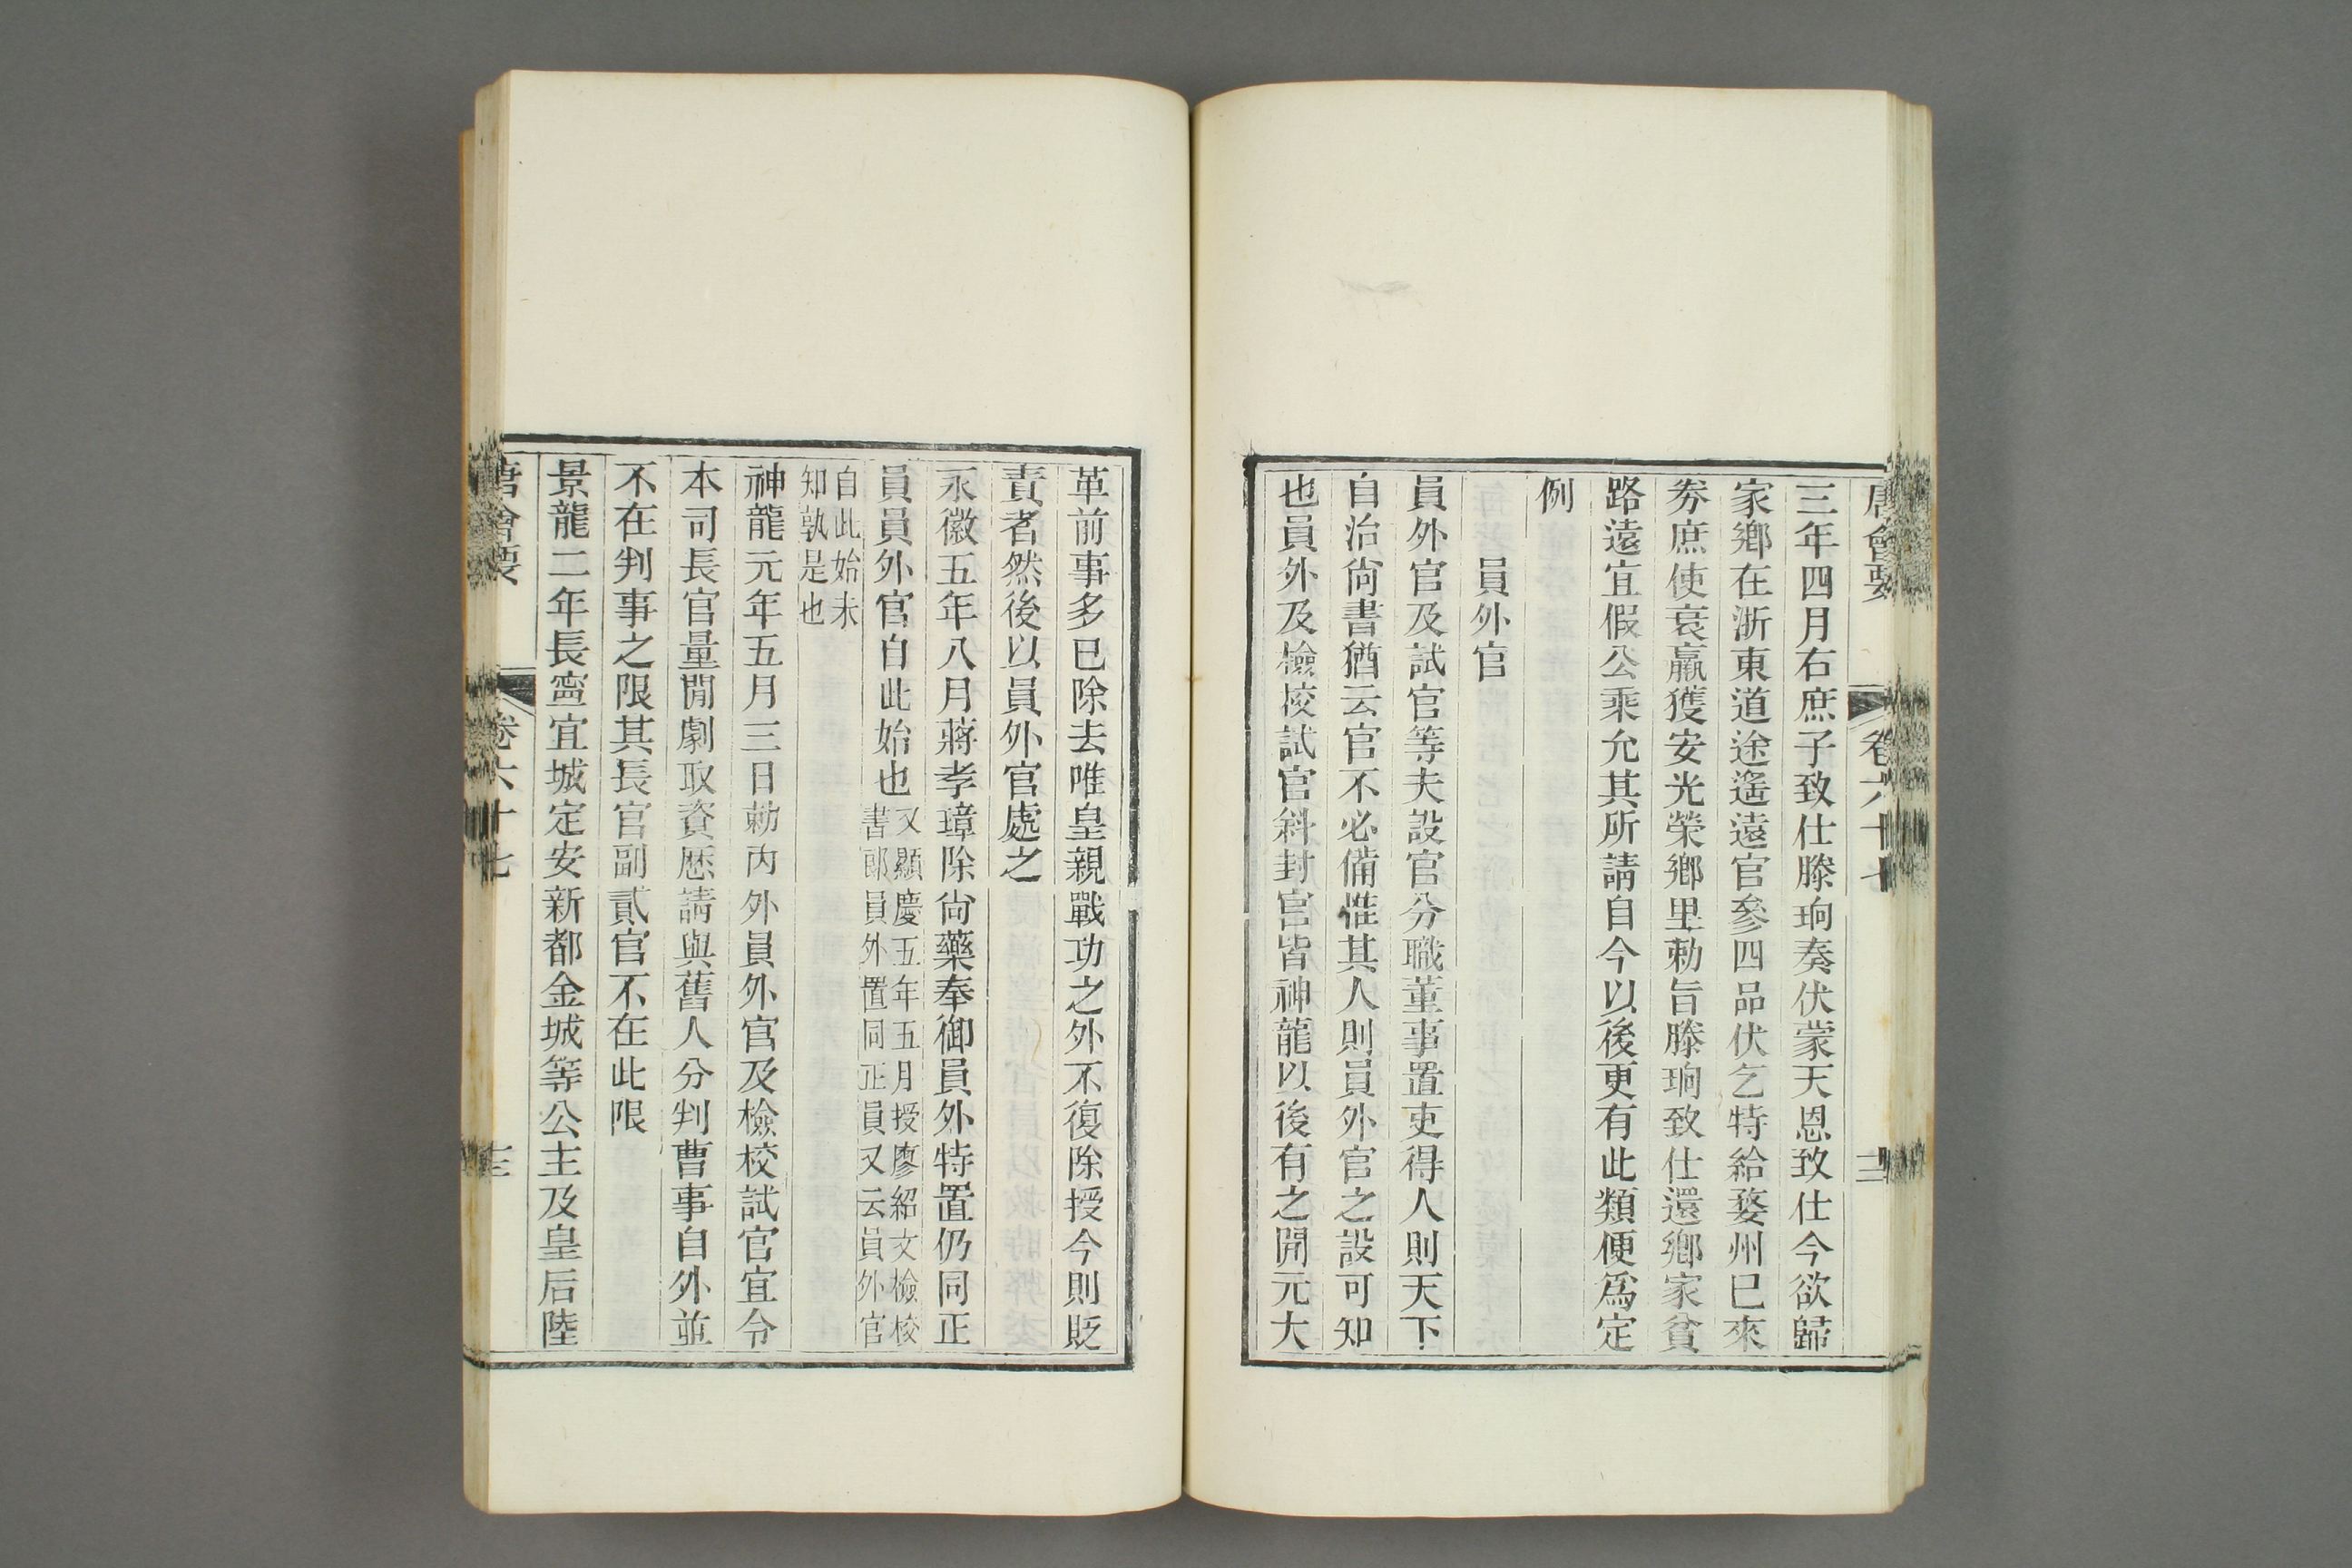 唐會要 卷六十七 十二
三年四月右庶子致仕滕珦奏伏蒙天恩致仕今欲歸
家鄉在浙東道途遙遠官參四品伏乞特給婺州已來
券庶使衰羸獲安光榮鄉里勅旨滕珦致仕還鄉家貧
路遠宜假公乘允其所請自今以後更有此類便爲定
例
員外官
員外官及試官等夫設官分職董事置吏得人則天下
自治尙書猶云官不必備惟其人則員外官之設可知
也員外及檢校試官斜封官皆神龍以後有之開元大
革前事多已除去唯皇親戰功之外不復除授今則貶
責者然後以員外官處之
永徽五年八月蔣孝璋除尙藥奉御員外特置仍同正
員員外官自此始也又顯慶五年五月授廖紹文檢校
書郞員外置同正員又云員外官
自此始未
知孰是也
神龍元年五月三日勅內外員外官及檢校試官宜令
本司長官量閒劇取資歷請與舊人分判曹事自外並
不在判事之限其長官副貳官不在此限
景龍二年長寧宜城定安新都金城等公主及皇后陸
唐會要 卷六十七 十三